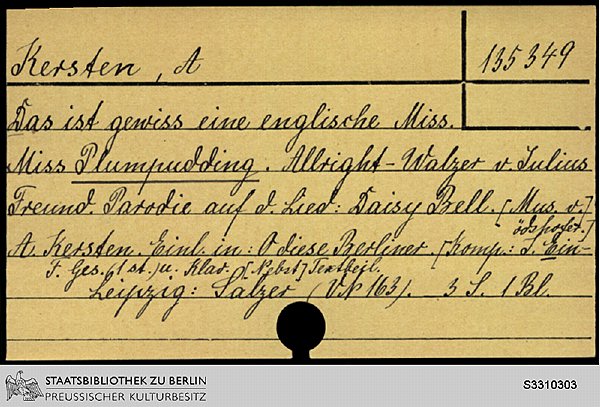 Kersten, A
135349
Das ist gewiss eine englische Miss.
Miss Plumpudding. Allright-Walzer v. Julius
Freund. Parodie auf d. Lied: Daisy Bell. [Mus. v.]
A. Kersten. Einl. in: O diese Berliner. [Komp.: J. Ein-
ödshofer.]
F. Ges. (1 st.) u. Klav. [Nebst] Textbeil.
Leipzig: Salzer (VN 163). 3 S. 1 Bl.
STAATSBIBLIOTHEK ZU BERLIN
PREUSSISCHER KULTURBESITZ
S3310303